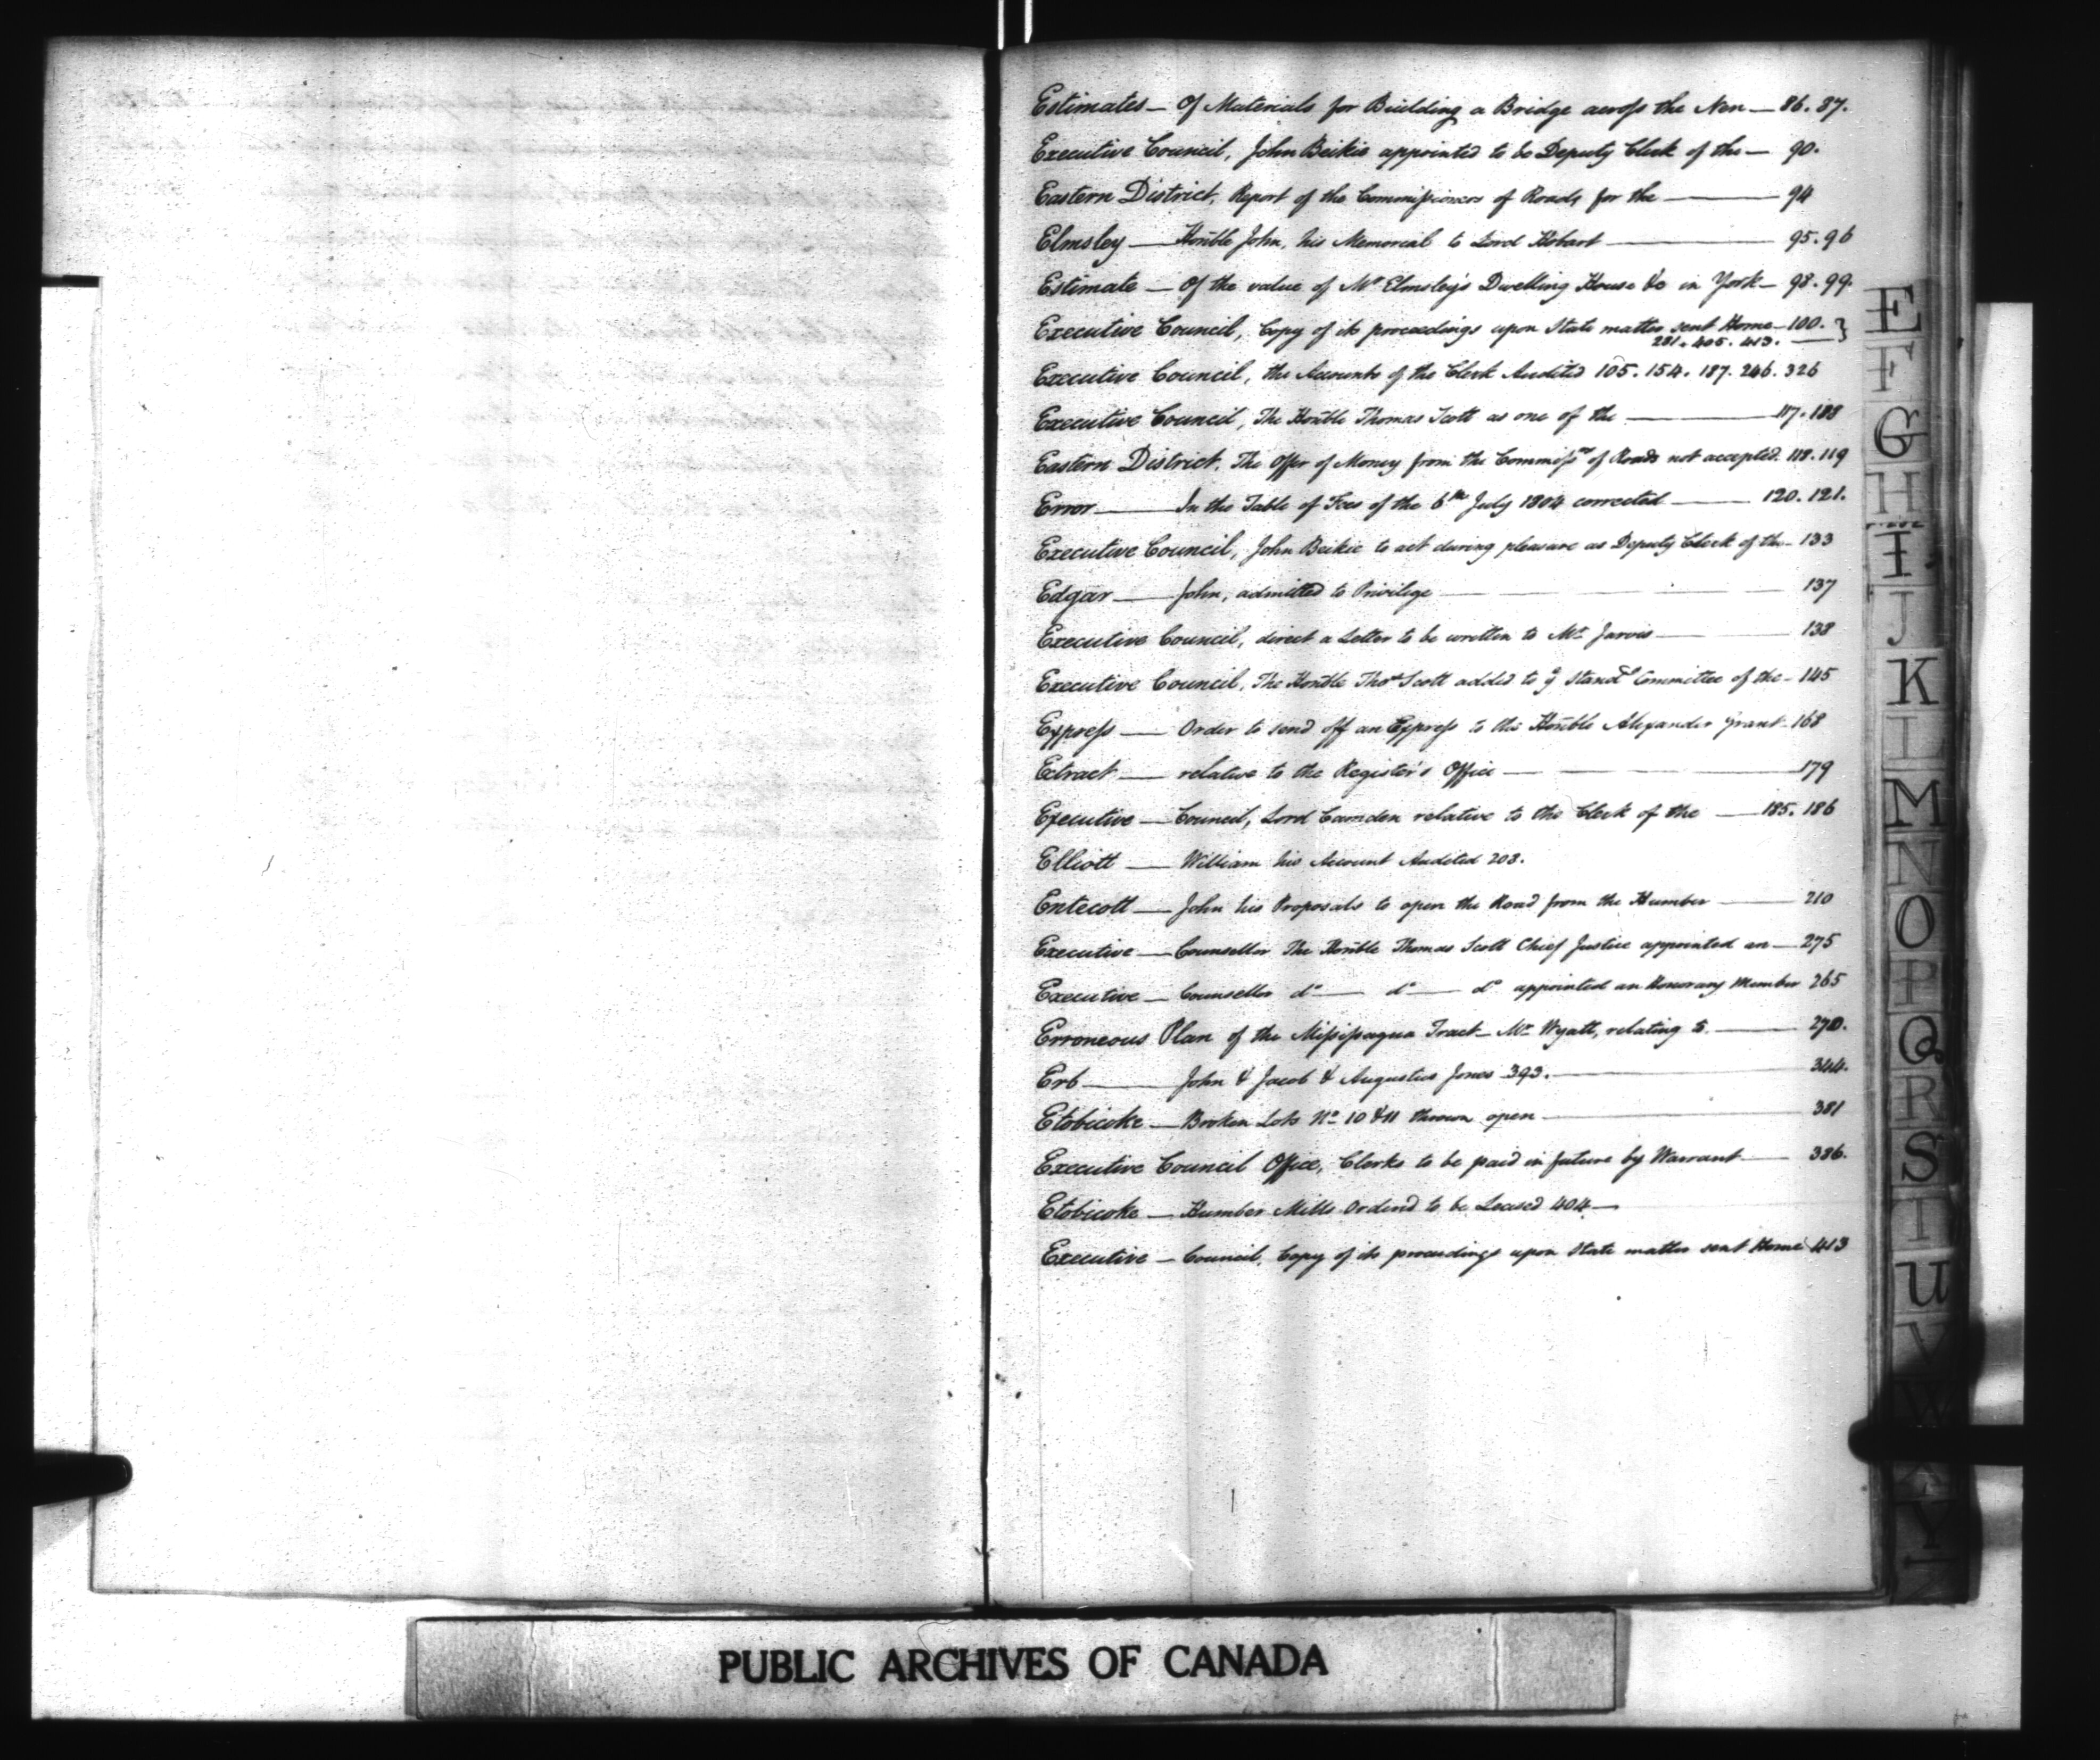 Estimates — Of Materials for Building a Bridge across the Nen — 86. 87.
Executive Council, John Beikie appointed to be Deputy Clerk of the — 90.
Eastern District, Report of the Commissioners of Roads for the — 94
Elmsley — Honble John, his Memorial to Lord Hobart — 95. 96
Estimate — Of the value of Mr Elmsley's Dwelling House &c in York — 98. 99.
Executive Council, Copy of its proceedings upon State matters sent Home — 100. }
281. 405. 413. —
Executive Council, the Accounts of the Clerk Audited 105. 154. 187. 246. 326
Executive Council, The Honble Thomas Scott as one of the — 117. 188
Eastern District, The Offer of Money from the Commissrs of Roads not accepted. 118. 119
Error — In the Table of Fees of the 6th July 1804 corrected — 120. 121.
Executive Council, John Beikie to act during pleasure as Deputy Clerk of the — 133
Edgar — John, admitted to Privilege — 137
Executive Council, direct a Letter to be written to Mr Jarvis — 138
Executive Council, The Honble Thos Scott added to ye Standg Committee of the — 145
Express — Order to send off an Express to the Honble Alexander Grant — 168
Extract — relative to the Register's Office — 179
Executive — Council, Lord Camden relative to the Clerk of the — 185. 186
Elliott — William his Account Audited 208.
Entecott — John his Proposals to open the Road from the Humber — 210
Executive — Counsellor The Honble Thomas Scott Chief Justice appointed an — 275
Executive — Counsellor do — do — do appointed an Honorary Member 265
Erroneous Plan of the Missisagua Tract — Mr Wyatt, relating to — 270.
Erb — John & Jacob & Augustus Jones 393. — 344.
Etobicoke — Broken Lots No 10 & 11 thrown open — 381
Executive Council Office, Clerks to be paid in future by Warrant — 386.
Etobicoke — Humber Mills Orderd to be Leased 404 —
Executive — Council, Copy of its proceedings upon State matter sent Home 413
E
F
G
H
I
J
K
L
M
N
O
P
Q
R
S
T
U
V
W
X
Y
Z
PUBLIC ARCHIVES OF CANADA